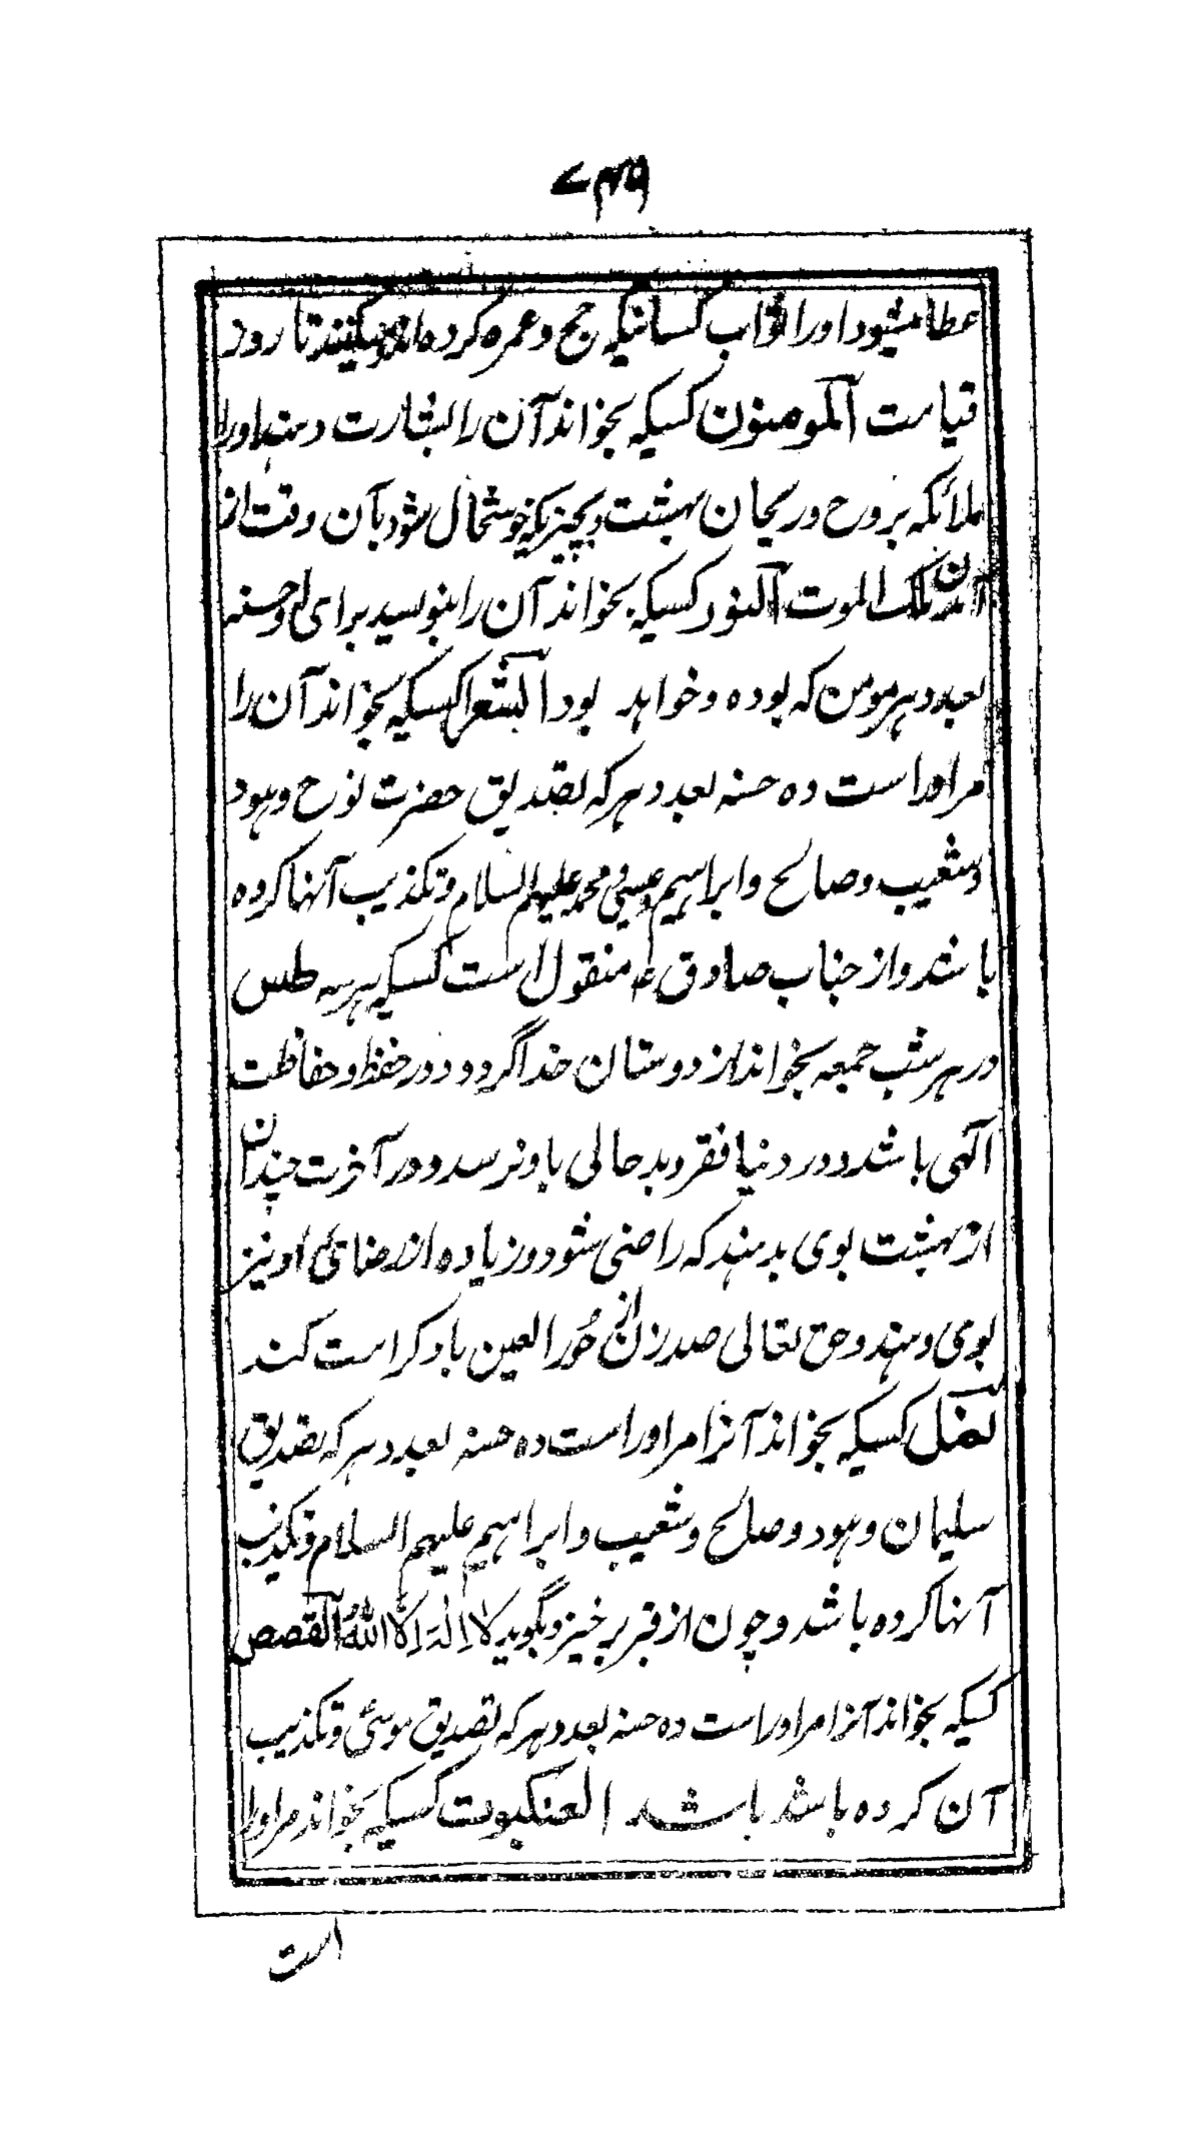 عطا میشود او را ثواب کسانیکه حج و عمره کرده اند و میکنند تا روز
قیامت المومنون کسیکه بخواند آن را بشارت دهند او را
ملائکه بروح و ریحان بهشت و بچیزیکه خوشحال شود بآن وقت از
آمدن ملک الموت النور کسیکه بخواند آن را بنویسید برای او حسنه
بعدد هر مومن که بوده و خواهد بود الشعرا کسیکه بخواند آن را
مر او را است ده حسنه بعدد هر که تصدیق حضرت نوح و هود
و شعیب و صالح و ابراهیم و عیسی و محمد علیهم السلام و تکذیب آنها کرده
باشد و از جناب صادق ع منقول است کسیکه هر سه طس
در هر شب جمعه بخواند از دوستان خدا گردد و در حفظ و حفاظت
آلهی باشد و در دنیا فقر و بدحالی باو نرسد و در آخرت چندان
از بهشت بوی بدهند که راضی شود و زیاده از رضائی او نیز
بوی دهند و حق تعالی صد زن از حُور العین باو کرامت کند
لنمل کسیکه بخواند آنرا مر او را است ده حسنه بعدد هر که تصدیق
سلیمان و هود و صالح و شعیب و ابراهیم علیهم السلام و تکذیب
آنها کرده باشد و چون از قبر برخیزد بگوید لا اِلٰهَ اِلّا اللّٰهُ القصص
کسیکه بخواند آنرا مر او را است ده حسنه بعدد هر که تصدیق موسیٰ و تکذیب
آن کرده باشد باشد العنکبوت کسیکه بخواند مر او را
است